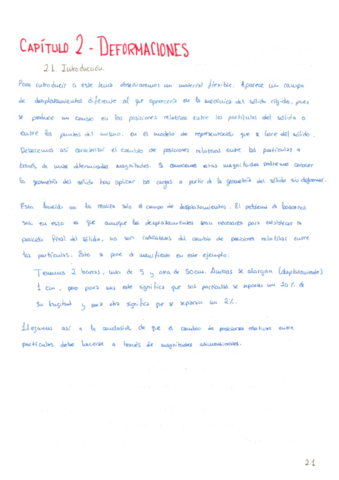 CAPÍTULO 2 - DEFORMACIONES
2.1. Introducción.
Para introducir a este tema observaremos un material flexible. Aparece un campo
de desplazamientos diferente al que aparecería en la mecánica del sólido rígido, pues
se produce un cambio en las posiciones relativas entre las partículas del sólido o
entre los puntos del mismo en el modelo de representación que se hace del sólido.
Deseamos así caracterizar el cambio de posiciones relativas entre las partículas a
través de unas determinadas magnitudes. Si conocemos estas magnitudes podremos conocer
la geometría del sólido tras aplicar las cargas a partir de la geometría del sólido sin deformar.
Esta función no la realiza solo el campo de desplazamientos. El problema de basarnos
solo en esto es que aunque los desplazamientos sean necesarios para establecer la
posición final del sólido, no son indicadores del cambio de posiciones relativas entre
las partículas. Esto se pone de manifiesto en este ejemplo:
Tenemos 2 barras, una de 5 y otra de 50cm. Ambas se alargan (desplazamiento)
1 cm, pero para una esto significa que sus partículas se separan un 20% de
su longitud y para otra significa que se separan un 2%.
Llegamos así a la conclusión de que el cambio de posiciones relativas entre
partículas debe hacerse a través de magnitudes adimensionales.
2.1